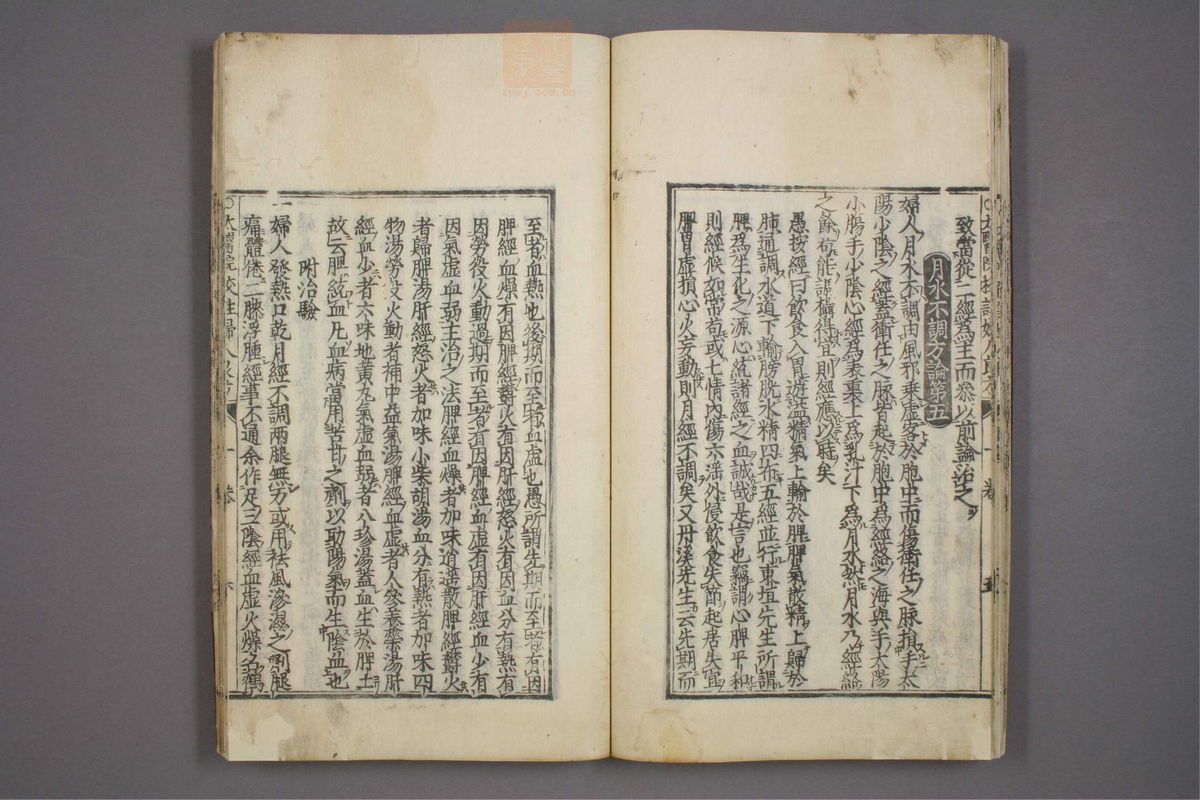 致當從二經為主而叅以前論治之
月水不調方論第五
婦人月水不調由風邪乗虛客於胞中而傷衝任之脉損手太
陽少陰之經蓋衝任之脉皆起於胞中為經絡之海與手太陽
小膓手少陰心經為表裏上為乳汁下為月水然月水乃經絡
之餘苟能調攝得宜則經應以時矣
愚按經曰飲食入胃遊溢精氣上輸於脾脾氣散精上歸於
肺通調水道下輸膀胱水精四布五經並行東垣先生所謂
脾為生化之源心統諸經之血誠哉是言也竊謂心脾平和
則經候如常苟或七情內傷六淫外侵飲食失節起居失宜
脾胃虛損心火妄動則月經不調矣又丹溪先生云先期而
至者血熱也後期而至者血虛也愚所謂先期而至者有因
脾經血燥有因脾經鬱火有因肝經怒火有因血分有熱有
因勞役火動過期而至者有因脾經血虛有因肝經血少有
因氣虛血弱主治之法脾經血燥者加味逍遥散脾經鬱火
者歸脾湯肝經怒火者加味小柴胡湯血分有熱者加味四
物湯勞役火動者補中益氣湯脾經血虛者人參養榮湯肝
經血少者六味地黃丸氣虛血弱者八珍湯蓋血生於脾土
故云脾統血凡血病當用苦甘之劑以助陽氣而生陰血也
附治驗
一婦人發熱口乾月經不調兩腿無力或用祛風滲濕之劑腿
痛體倦二膝浮腫經事不通余作足三陰經血虛火燥名鶴